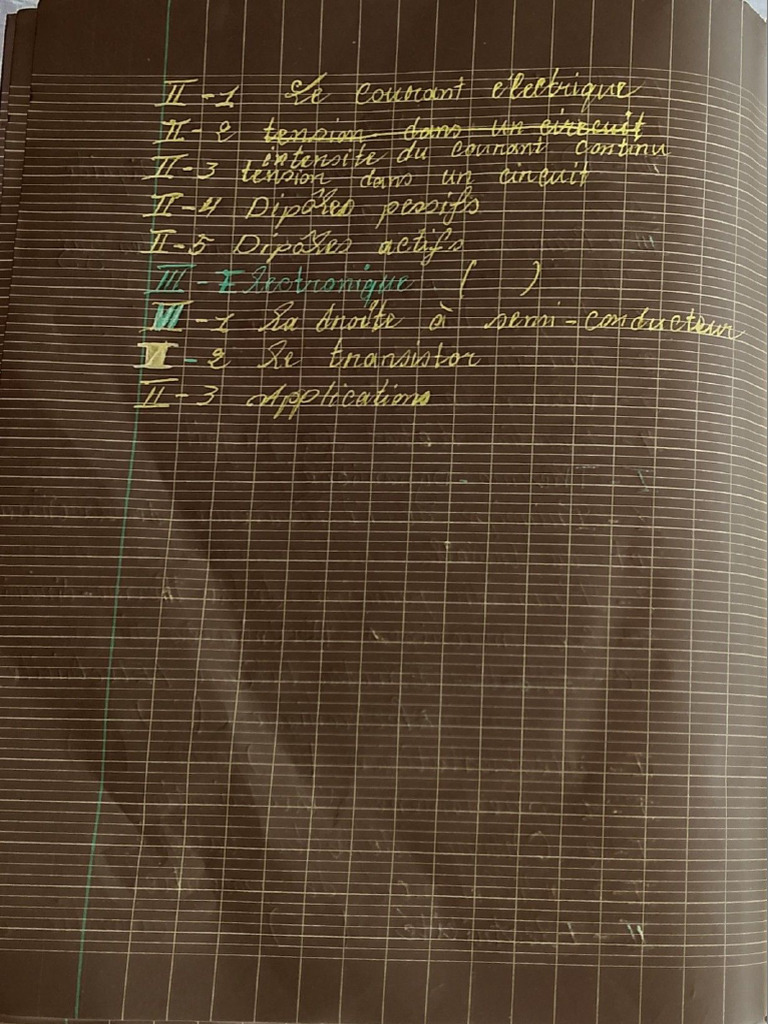 II-1 Le courant électrique
II-2 tension dans un circuit
intensite du courant continu
II-3 tension dans un circuit
II-4 Dipôles passifs
II-5 Dipôles actifs
III-Electronique ( )
III-1 La diode à semi-conducteur
II-2 Le transistor
II-3 Applications